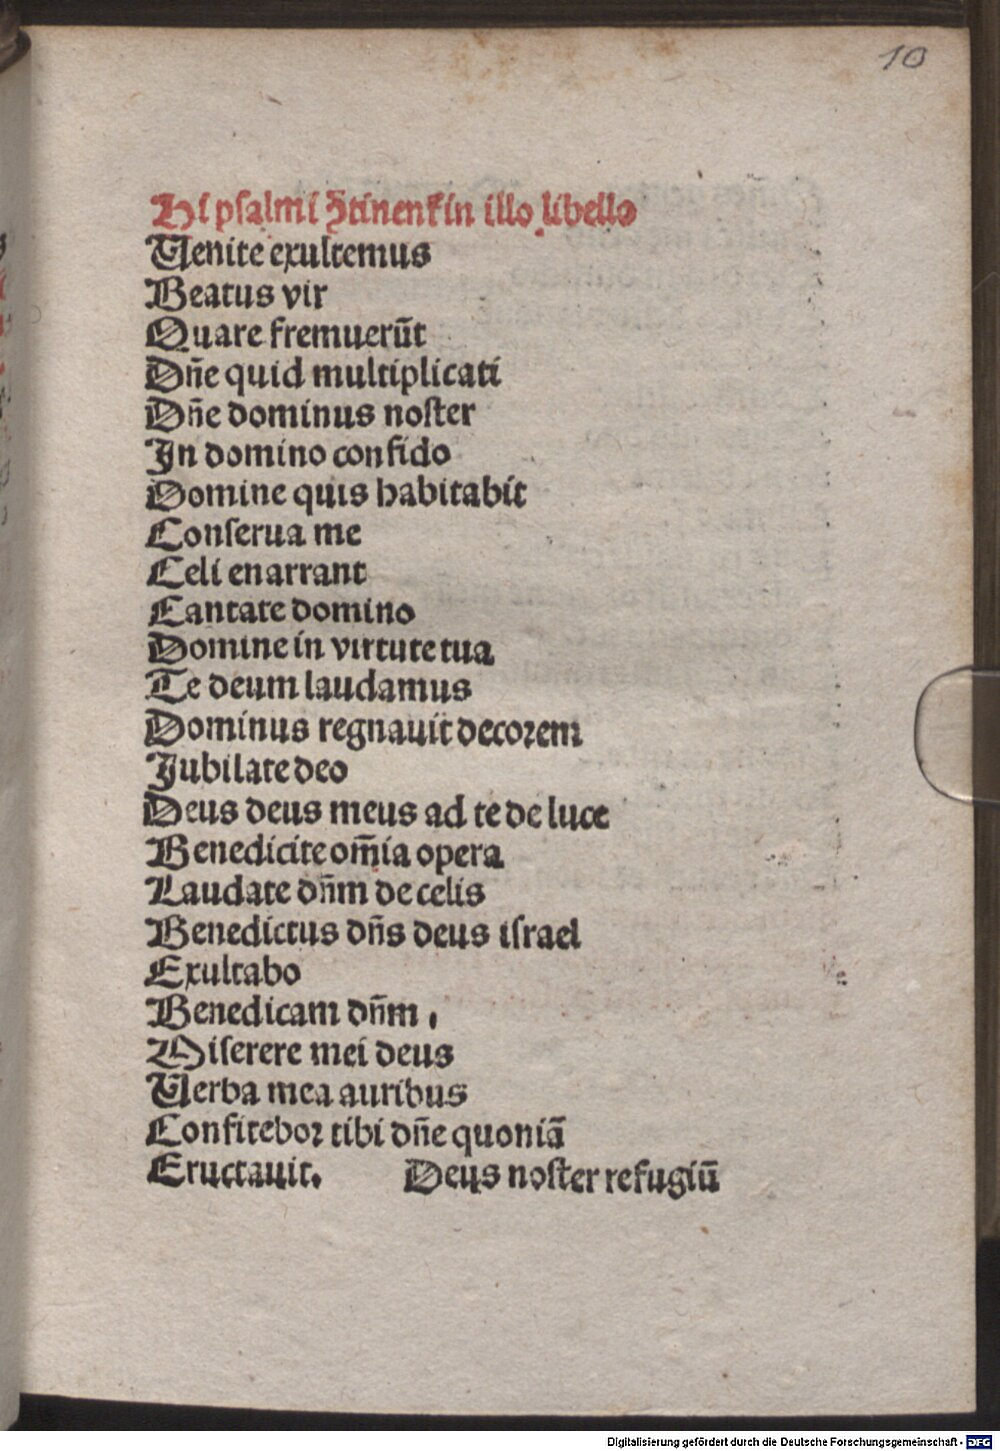 10
Hi psalmi ꝯtinenť in illo libello
Uenite exultemus
Beatus vir
Quare fremuerūt
Dñe quid multiplicati
Dñe dominus noſter
In domino confido
Domine quis habitabit
Conſerua me
Celi enarrant
Cantate domino
Domine in virtute tua
Te deum laudamus
Dominus regnauit decoꝛem
Jubilate deo
Deus deus meus ad te de luce
Benedicite om̄ia opera
Laudate dñm de celis
Benedictus dñs deus iſrael
Exultabo
Benedicam dñm
Miſerere mei deus
Uerba mea auribus
Confiteboꝛ tibi dñe quoniā
Eructauit. Deus noſter refugiū
Digitalisierung gefördert durch die Deutsche Forschungsgemeinschaft - DFG